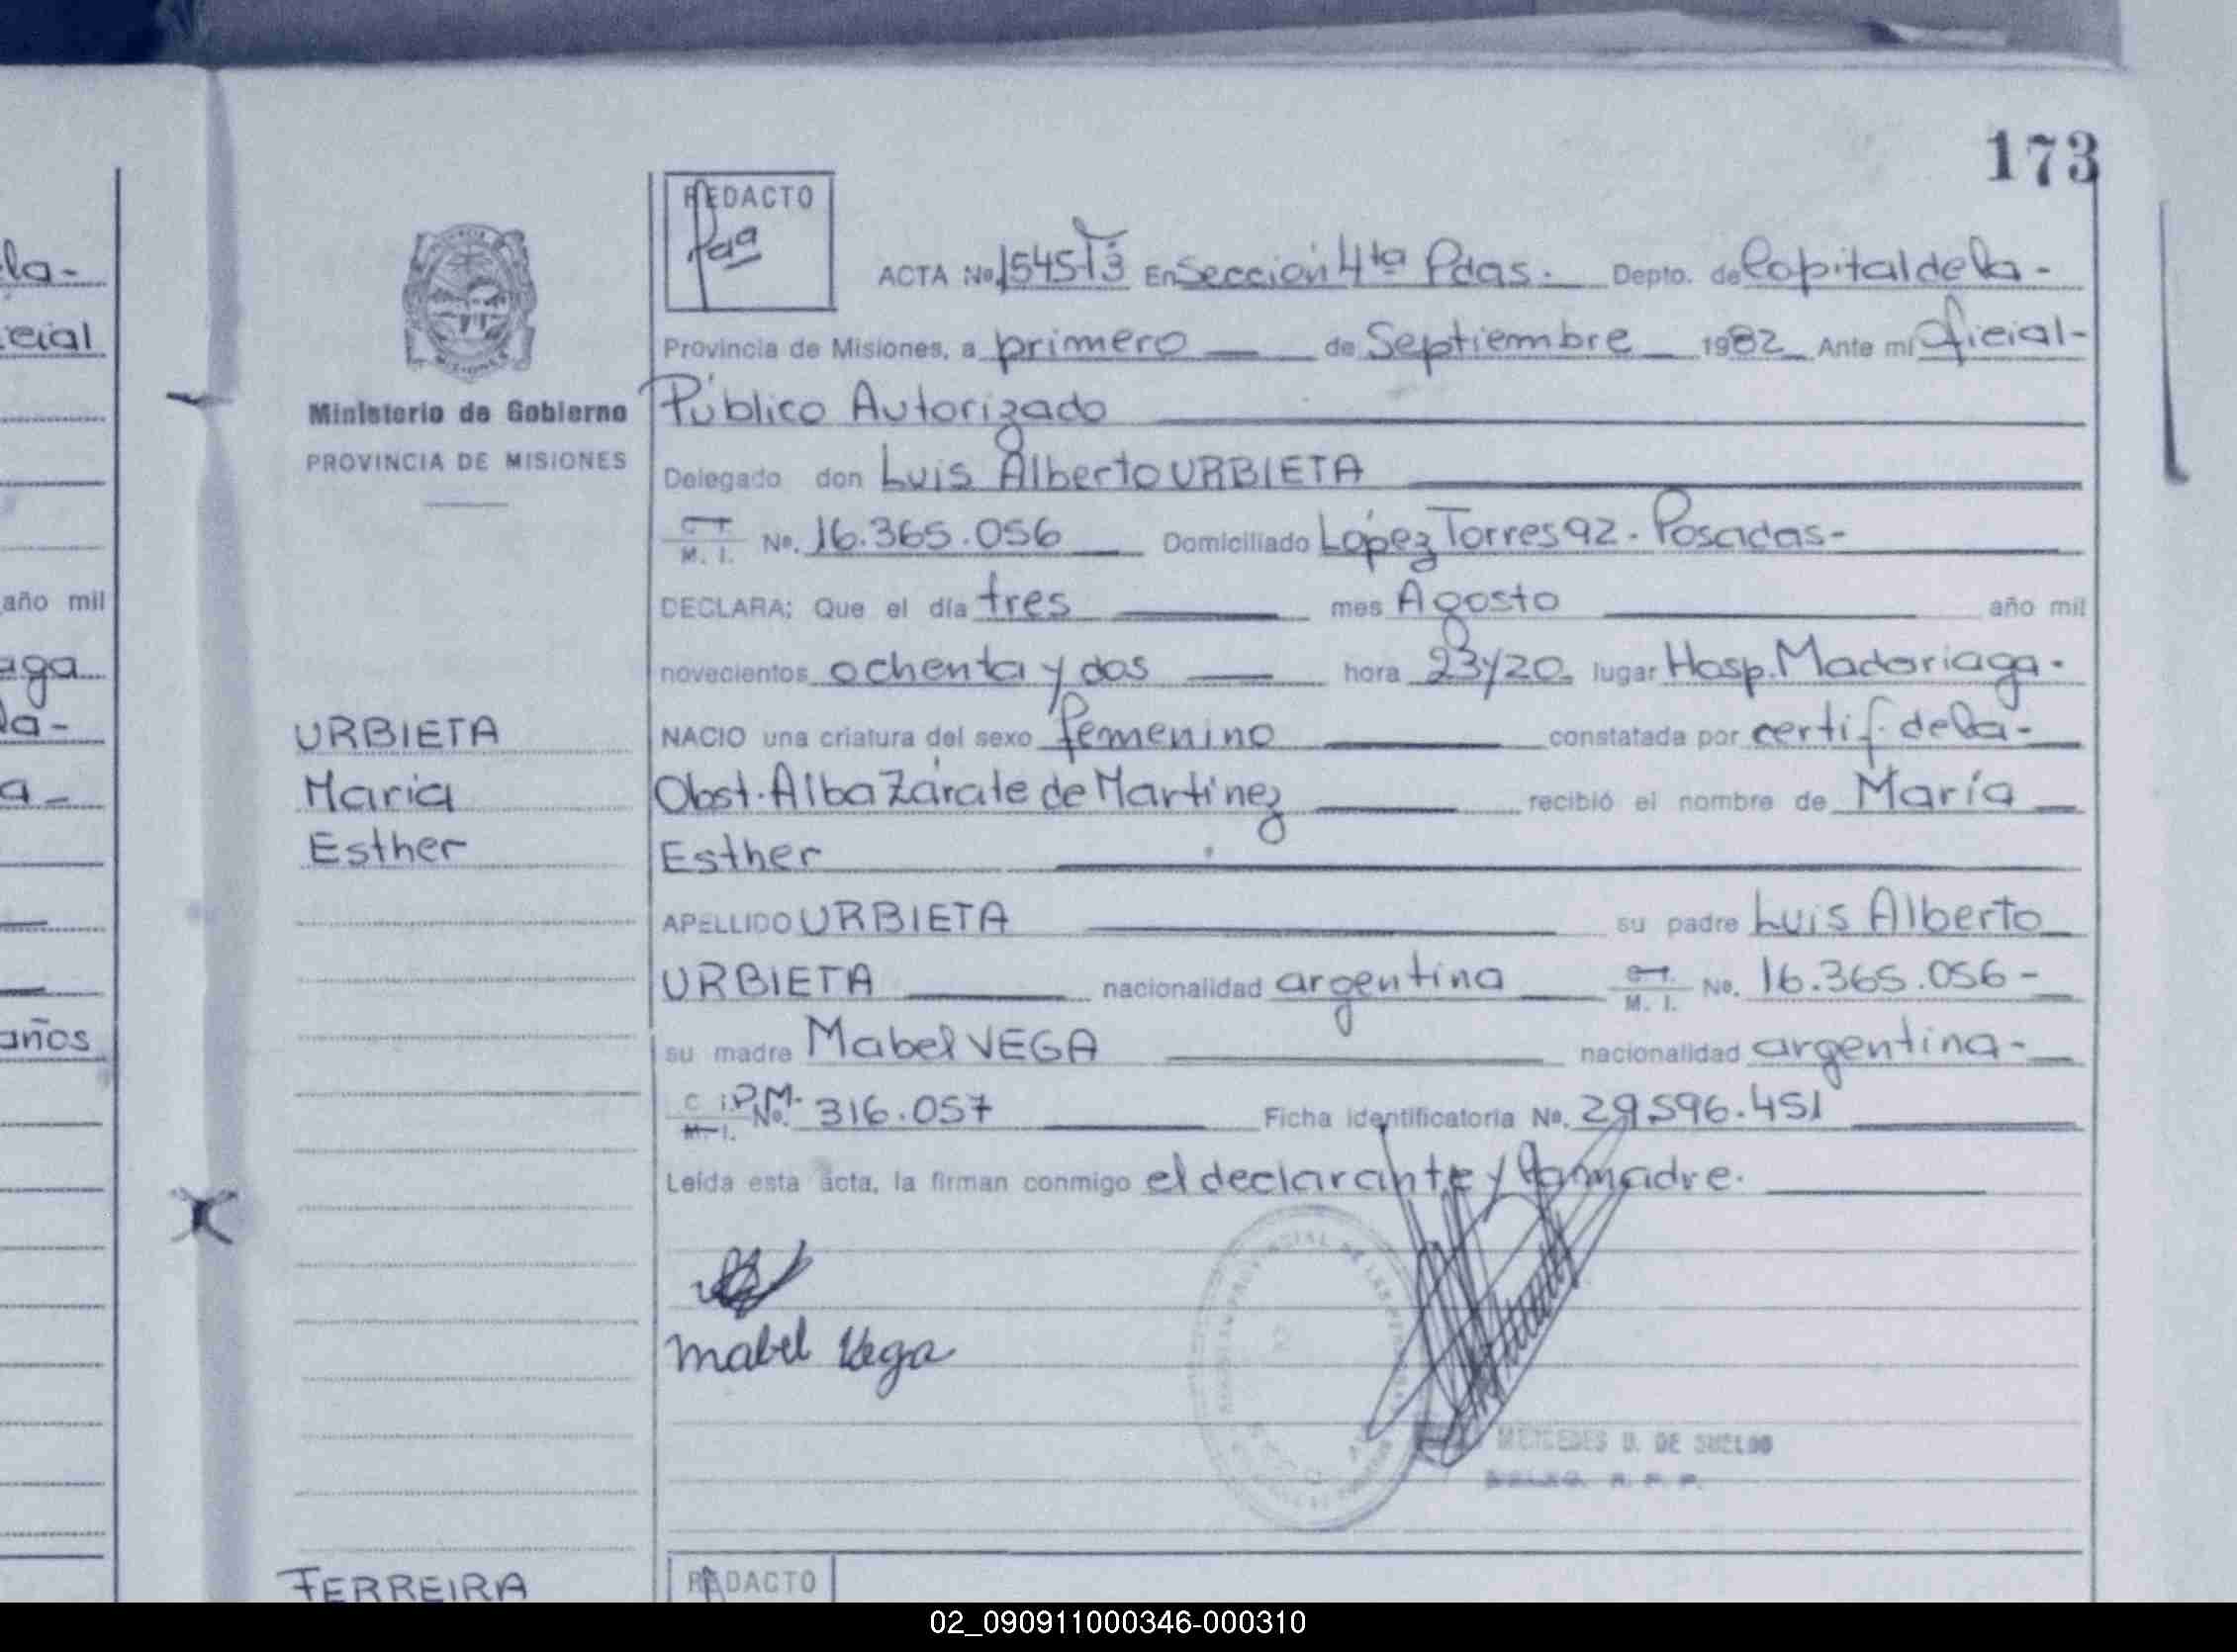 173
REDACTO
Pdª
ACTA No. 1545 T3 En Sección 4ta Pdas. Depto. de Capital de la-
Provincia de Misiones, a primero de Septiembre 1982 Ante mí Oficial-
Público Autorizado
Delegado don Luis Alberto URBIETA
M. I. No. 16.365.056 Domiciliado López Torres 92. Posadas-
DECLARA; Que el día tres mes Agosto año mil
novecientos ochenta y dos hora 23y20 lugar Hosp. Madariaga.
NACIO una criatura del sexo femenino constatada por certif. de la-
Obst. Alba Zárate de Martínez recibió el nombre de María
Esther
APELLIDO URBIETA su padre Luis Alberto
URBIETA nacionalidad argentina M. I. No. 16.365.056-
su madre Mabel VEGA nacionalidad argentina-
C I. P.M. M. I. No. 316.057 Ficha identificatoria No. 29.596.451
Leída esta acta, la firman conmigo el declarante y la madre.
Mabel Vega
MERCEDES D. DE SUELDO
REDACTO
Ministerio de Gobierno
PROVINCIA DE MISIONES
URBIETA
Maria
Esther
FERREIRA
la-
cial
año mil
aga
la-
a-
años
02_090911000346-000310